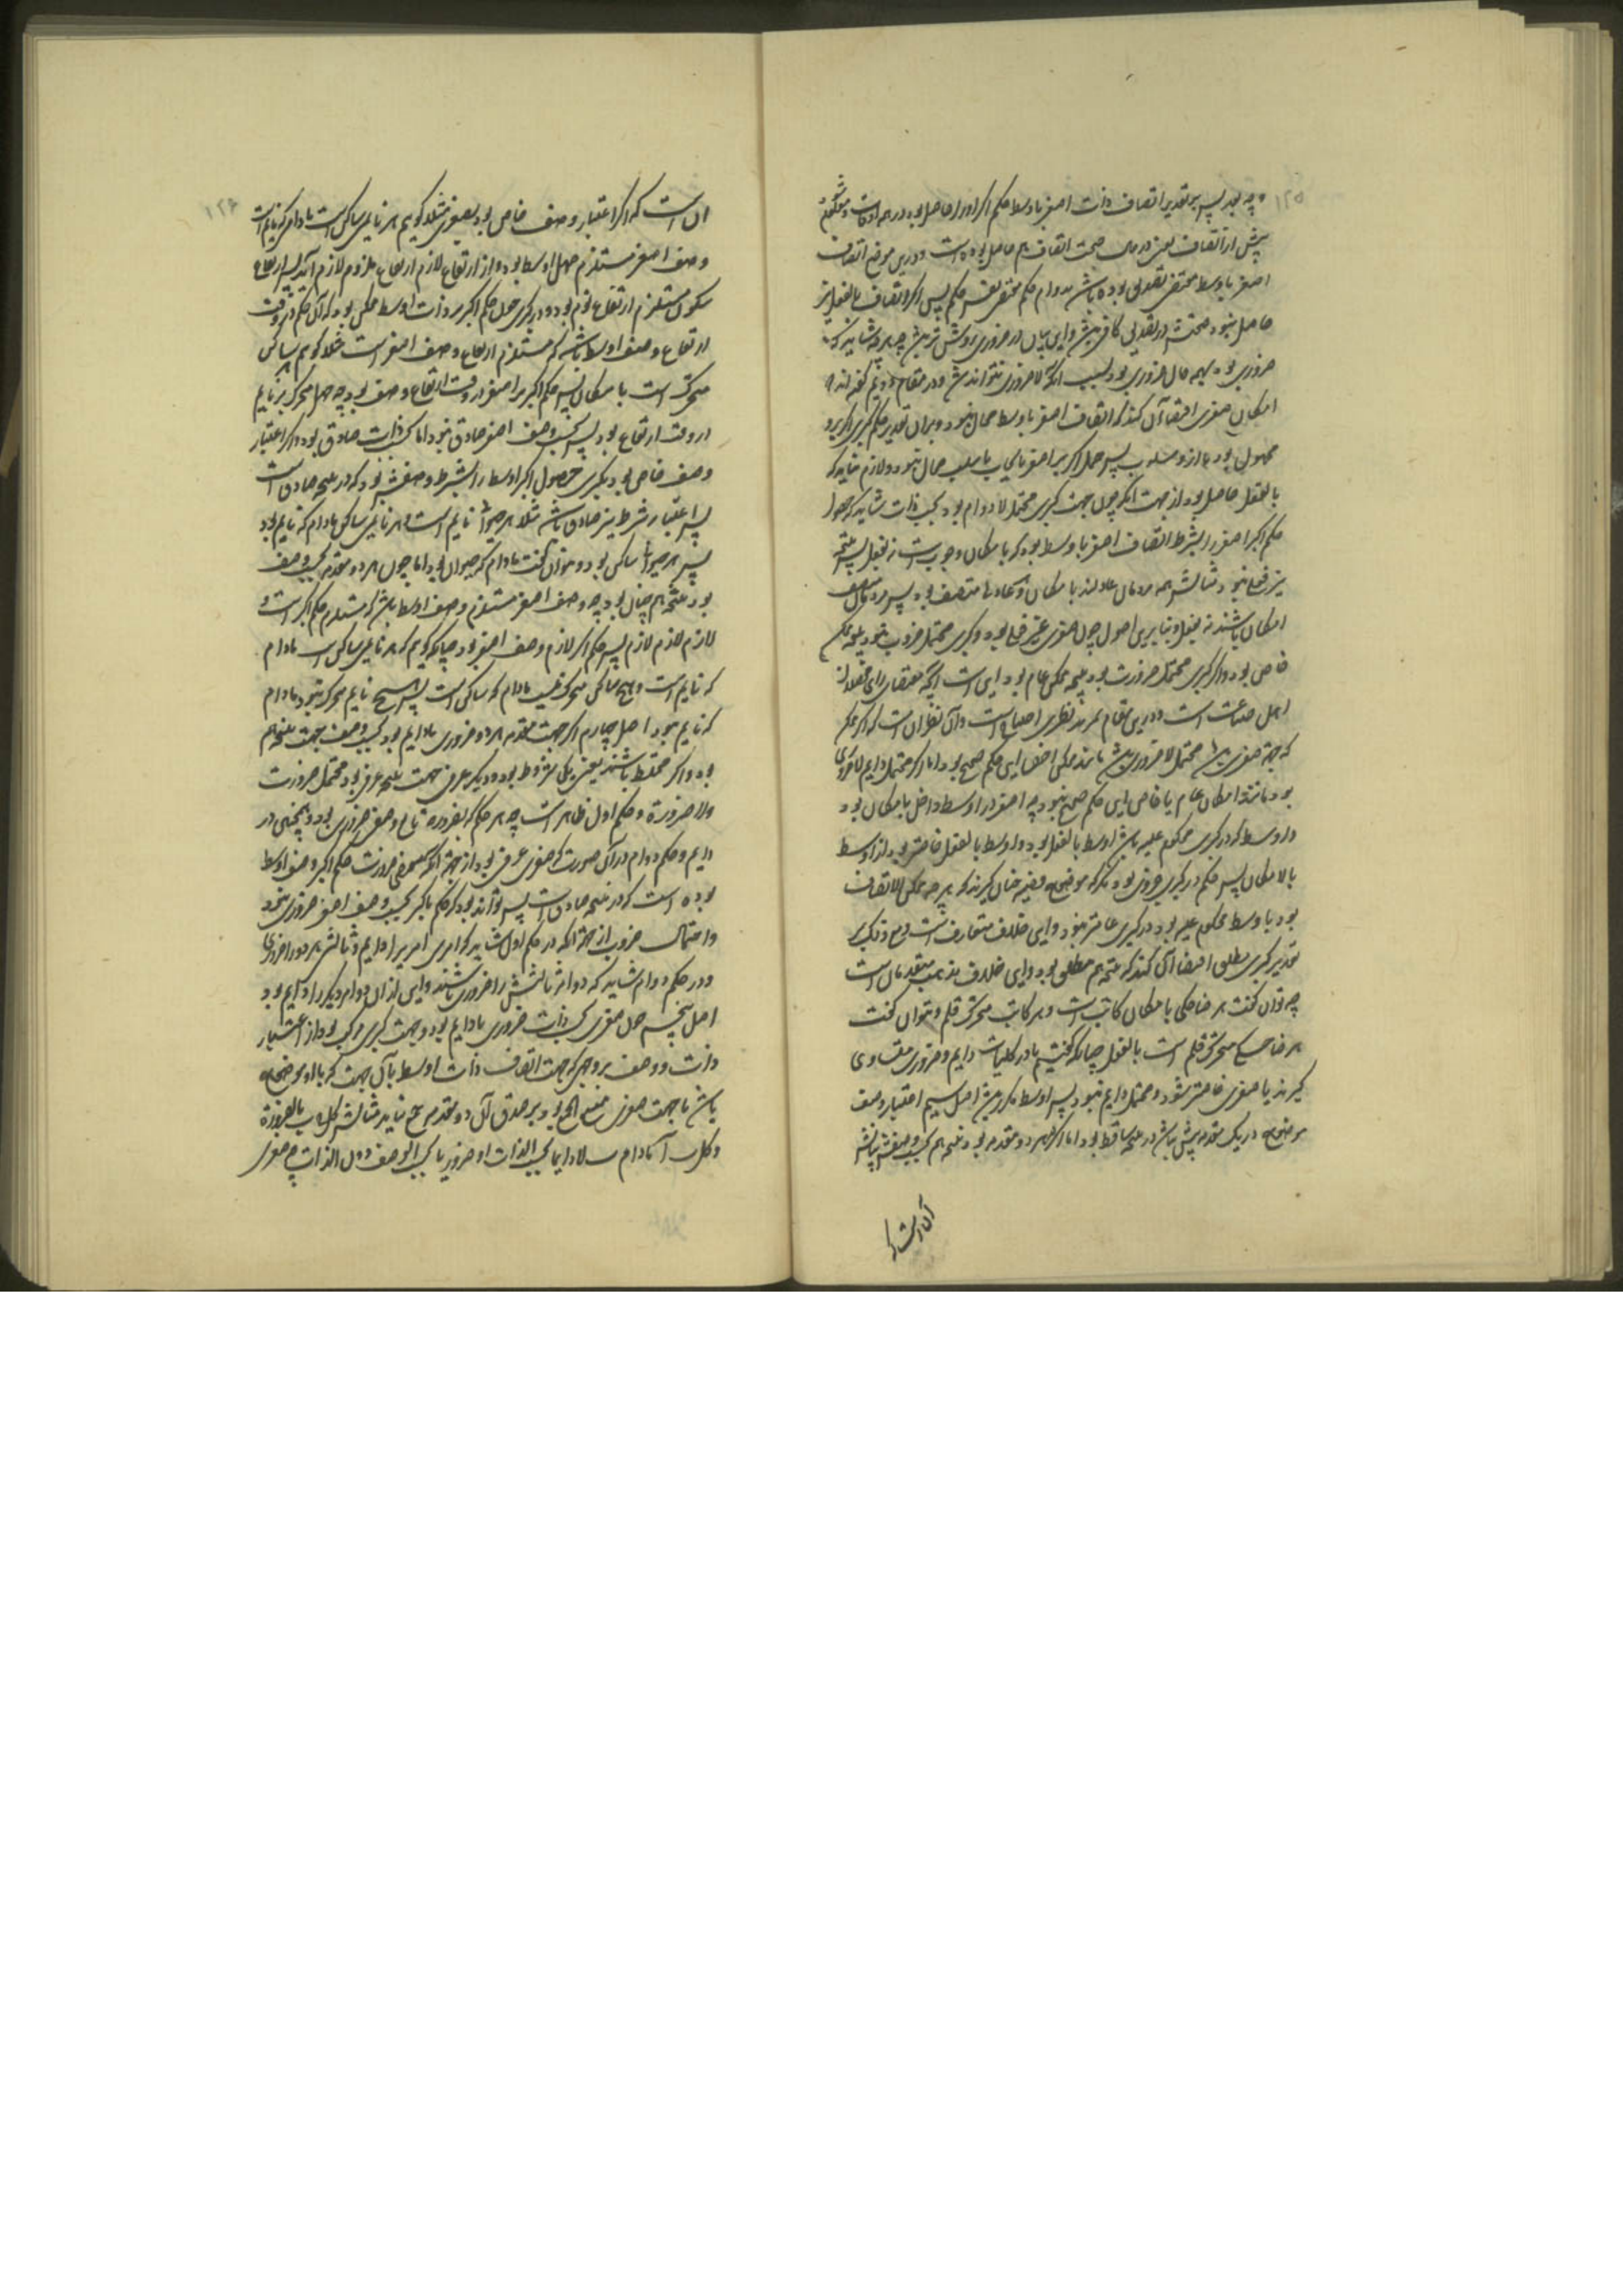 ۱۲۵
چه بود پس بر تقدیر اتصاف ذات اصغر باوسط حکم اکبر او را حاصل بود در همه اوقات
پیش از اتصاف یعنی در حال صحت اتصاف هم حاصل بوده است و درین موضع اتصاف
اصغر باوسط مقتضی تصدیق بوده باشد بدوام حکم نه مقتضی نفس حکم پس اگر اتصاف بالفعل نیز
حاصل نبود صحتش در تصدیق کافی باشد و این بیان در ضروری روشن تر باشد چه هرچه شاید که
ضروری بود همه حال ضروری بود بسبب آنکه لاضروری نتواند شد و در مقام دویم گفته اند
امکان صغری اقتضاء آن کند که اتصاف اصغر باوسط محال نبود و بر آن تقدیر حکم کبری اکبر برو
محمول بود یا ازو مسلوب پس حمل اکبر بر اصغر بایجاب یا سلب محال نبود و لازم نیاید که
بالفعل حاصل بود از جهت آنکه چون جهت کبری محتمل لادوام بود بحسب ذات شاید که حصول
حکم اکبر اصغر را بشرط اتصاف اصغر باوسط بود که بامکان وجودست نه بفعل پس نتیجه
نیز فعلی نبود مثالش همه مردمان عادلند بامکان و عادل متصف بود پس مردمان متصف
بامکان باشند نه بفعل و بنابرین اصول چون صغری غیر فعلی بود و کبری محتمل ضرورت نبود نتیجه ممکن
خاص بود و اگر کبری محتمل ضرورت بود نتیجه ممکن عام بود این است آنچه مقتضای رای فضلای
اهل صناعت است و درین مقام بمزید نظری احتیاج است و آن نظر آن است که اگر ممکن
که جهت صغری باشد محتمل لاضروری باشد مانند ممکن اخص این حکم صحیح بود اما اگر محتمل دایم لاضروری
بود مانند امکان عام یا خاص این حکم صحیح نبود چه اصغر در اوسط داخل بامکان بود
و اوسط که در کبری محکوم علیه باشد اوسط بالفعل بود و اوسط بالفعل خاصتر بود از اوسط
بالامکان پس حکم در کبری جزوی بود مگر که موضوع قضیه چنان گیرند که هرچه ممکن الاتصاف
بود باوسط محکوم علیه بود در کبری عامتر نبود و این خلاف متعارفست و مع ذلک بر
تقدیر کبری مطلق اقتضاء آن کند که نتیجه هم مطلق بود و این خلاف مذهب متقدمان است
چه توان گفت هر ضاحکی بامکان کاتب است و هر کاتب متحرک قلم و نتوان گفت
هر ضاحکی متحرک قلم است بالفعل چنانکه گفتیم یا در کلیات دایم و ضروری متساوی
گیرند یا صغری خاصتر شود و محتمل دایم نبود پس اوسط مکرر باشد اصل سیم اعتبار وصف
موضوع در یک مقدمه بیش نباشد در نتیجه ساقط بود اما اگر در هر دو مقدمه بود نتیجه هم بحسب وصفش باشد
۱۲۶
آن است که اگر اعتبار وصف خاص بود بصغری مثلا گویم هر نایمی ساکن است مادام که نایم است
وصف اصغر مستلزم حمل اوسط بود و از ارتفاع لازم ارتفاع ملزوم لازم آید پس ارتفاع
سکون مستلزم ارتفاع نوم بود و در کبری حمل حکم اکبر بر ذات اوسط ممکن بود که آن حکم در وقت
ارتفاع وصف اوسط باشد که مستلزم ارتفاع وصف اصغر است مثلا گویم هر ساکن
متحرک است بامکان پس حکم اکبر بر اصغر در وقت ارتفاع وصف بود چه حمل متحرک بر نایم
در وقت ارتفاع بود پس بحسب وصف اصغر صادق نبود اما بحسب ذات صادق بود و اگر اعتبار
وصف خاص بود بکبری حصول اکبر اوسط را بشرط وصفش بود که در نتیجه صادق است
پس اعتبار شرط نیز صادق نباشد مثلا هر حیوانی نایم است و هر نایمی ساکن مادام که نایم بود
پس هر حیوانی ساکن بود و نتوان گفت مادام که حیوان بود اما چون هر دو مقدمه بحسب وصف
بود نتیجه هم چنان بود چه وصف اصغر مستلزم وصف اوسط باشد که مستلزم حکم اکبر است و
لازم لازم لازم پس حکم اکبر لازم وصف اصغر بود چنانکه گویم که هر نایمی ساکن است مادام
که نایم است و هیچ ساکن متحرک نیست مادام که ساکن است پس هیچ نایم متحرک نبود مادام
که نایم بود اصل چهارم اگر جهت مقدمه هر دو ضروری یا دایم بود بحسب وصف جهت نتیجه هم
بود و اگر مختلط باشند یعنی یکی مشروط بود و دیگر عرفی جهت نتیجه عرفی بود محتمل ضرورت
و لاضرورة و حکم اول ظاهر است چه هر حکم که بضرورة تابع وصف ضروری بود و همچنین در
دایم و حکم دوام در آن صورت که صغری عرفی بود از جهة آنکه مقتضی ضرورت حکم اکبر وصف اوسط
بوده است که در نتیجه صادق است پس تواند بود که حکم باکبر بحسب وصف اصغر ضروری نبود
و احتمال ضرورت از جهة آنکه در حکم اول شاید که امری امریرا دایم و ثالثی هر دو را ضروری
و در حکم دوام شاید که دو امر ثالثش را ضروری باشند و این از آن دوام دیگر را دایم بود
اصل پنجم چون صغری بحسب ذات ضروری یا دایم بود و جهت کبری مرکب بود از اعتبار
ذات و وصف بر وجهی که جهت اتصاف ذات اوسط بآن جهت که با او موضوع
باشد با جهت صغری ممتنع الجمع بود بر صدق آن دو مقدمه جمع نیاید مثالش کل ج ب بالضرورة
و کل ب آ مادام ب لادایما بحسب الذات او ضروریا بحسب الوصف دون الذات چه صغری
آن است که